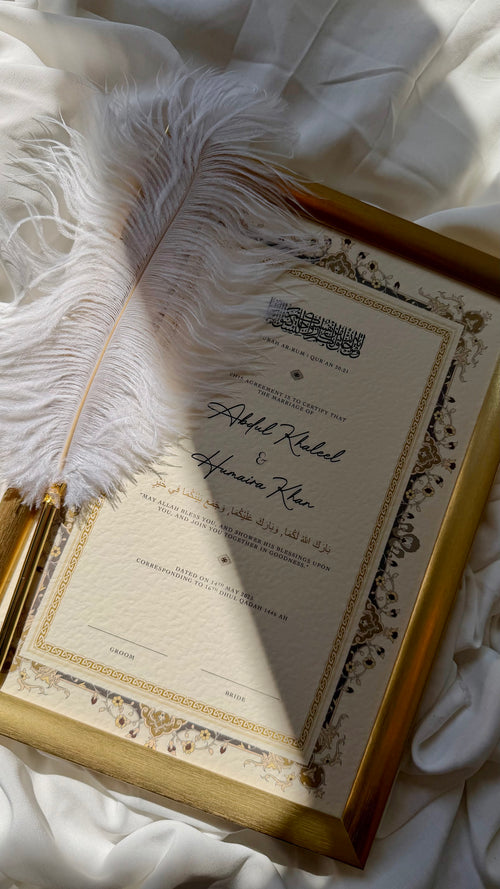 AR-RUM : QUR'AN 30:21
THIS AGREEMENT IS TO CERTIFY THAT
THE MARRIAGE OF
Abdul Khaleel
&
Humaira Khan
بَارَكَ اللهُ لَكُمَا، وَبَارَكَ عَلَيْكُمَا، وَجَمَعَ بَيْنَكُمَا فِي خَيْرٍ
"MAY ALLAH BLESS YOU, AND SHOWER HIS BLESSINGS UPON
YOU, AND JOIN YOU TOGETHER IN GOODNESS."
DATED ON 14TH MAY 2025
CORRESPONDING TO 16TH DHUL QADAH 1446 AH
GROOM
BRIDE